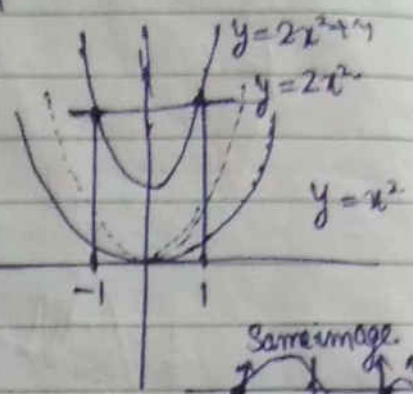 y=2x²+
y=2x²
y=x²
-1 1
Same image.